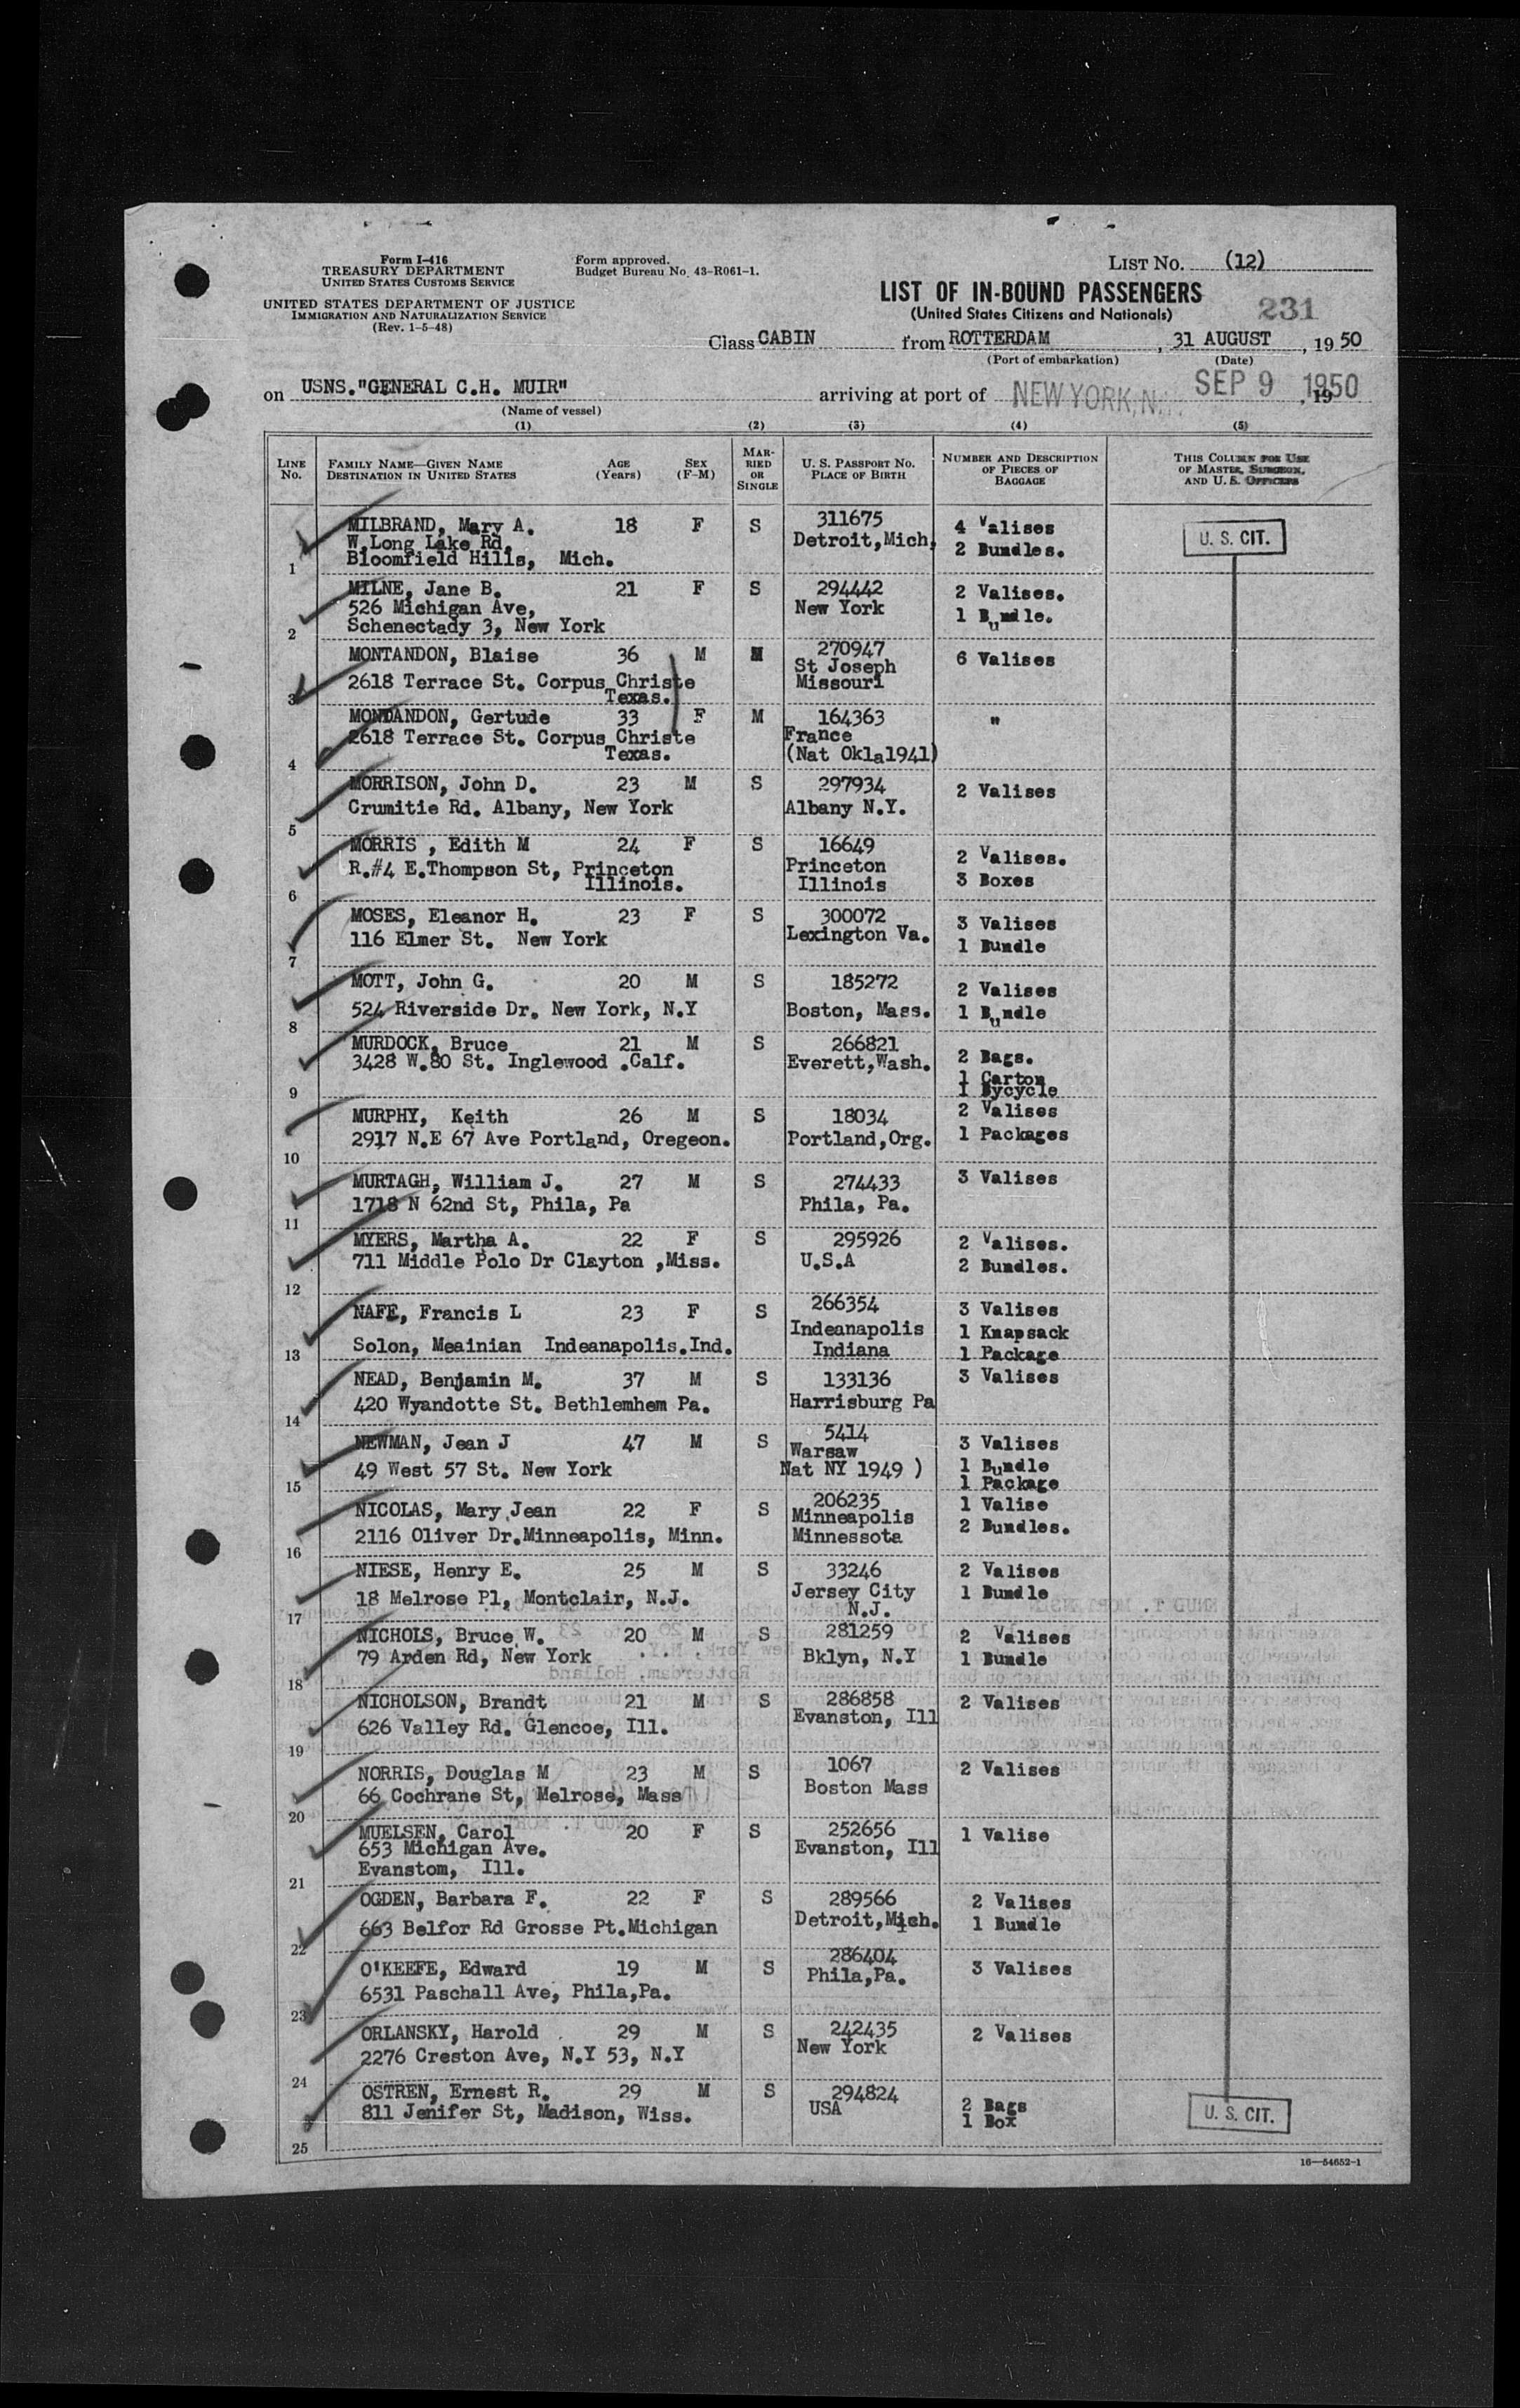 Form I-416
TREASURY DEPARTMENT
UNITED STATES CUSTOMS SERVICE
UNITED STATES DEPARTMENT OF JUSTICE
IMMIGRATION AND NATURALIZATION SERVICE
(Rev. 1-5-48)
Form approved.
Budget Bureau No. 43-R061-1.
LIST No. (12)
LIST OF IN-BOUND PASSENGERS
(United States Citizens and Nationals)
231
Class CABIN from ROTTERDAM, 31 AUGUST, 1950
(Port of embarkation) (Date)
on USNS."GENERAL C.H. MUIR" arriving at port of NEW YORK, N. SEP 9 1950, 19
(Name of vessel)
(1) (2) (3) (4) (5)
LINE No. FAMILY NAME—GIVEN NAME DESTINATION IN UNITED STATES AGE (Years) SEX (F-M) MARRIED OR SINGLE U. S. PASSPORT No. PLACE OF BIRTH NUMBER AND DESCRIPTION OF PIECES OF BAGGAGE THIS COLUMN FOR USE OF MASTER, SURGEON, AND U. S. OFFICERS
MILBRAND, Mary A. 18 F S 311675 4 Valises U. S. CIT.
W.Long Lake Rd. Detroit,Mich, 2 Bundles.
1 Bloomfield Hills, Mich.
MILNE, Jane B. 21 F S 294442 2 Valises.
526 Michigan Ave, New York 1 Bundle.
2 Schenectady 3, New York
MONTANDON, Blaise 36 M M 270947 6 Valises
2618 Terrace St. Corpus Christe St Joseph
3 Texas. Missouri
MONDANDON, Gertude 33 F M 164363 "
2618 Terrace St. Corpus Christe France
4 Texas. (Nat Okla1941)
MORRISON, John D. 23 M S 297934 2 Valises
Crumitie Rd. Albany, New York Albany N.Y.
5
MORRIS , Edith M 24 F S 16649 2 Valises.
R.#4 E.Thompson St, Princeton Princeton 3 Boxes
6 Illinois. Illinois
MOSES, Eleanor H. 23 F S 300072 3 Valises
116 Elmer St. New York Lexington Va. 1 Bundle
7
MOTT, John G. 20 M S 185272 2 Valises
524 Riverside Dr. New York, N.Y Boston, Mass. 1 Bundle
8
MURDOCK, Bruce 21 M S 266821 2 Bags.
3428 W.80 St. Inglewood .Calf. Everett,Wash. 1 Carton
9 1 Bycycle
MURPHY, Keith 26 M S 18034 2 Valises
2917 N.E 67 Ave Portland, Oregeon. Portland,Org. 1 Packages
10
MURTAGH, William J. 27 M S 274433 3 Valises
1718 N 62nd St, Phila, Pa Phila, Pa.
11
MYERS, Martha A. 22 F S 295926 2 Valises.
711 Middle Polo Dr Clayton ,Miss. U.S.A 2 Bundles.
12
NAFE, Francis L 23 F S 266354 3 Valises
Indeanapolis 1 Knapsack
13 Solon, Meainian Indeanapolis.Ind. Indiana 1 Package
NEAD, Benjamin M. 37 M S 133136 3 Valises
420 Wyandotte St. Bethlemhem Pa. Harrisburg Pa
14
NEWMAN, Jean J 47 M S 5414 3 Valises
49 West 57 St. New York Warsaw 1 Bundle
15 Nat NY 1949 ) 1 Package
NICOLAS, Mary Jean 22 F S 206235 1 Valise
2116 Oliver Dr.Minneapolis, Minn. Minneapolis 2 Bundles.
16 Minnessota
NIESE, Henry E. 25 M S 33246 2 Valises
18 Melrose Pl, Montclair, N.J. Jersey City 1 Bundle
17 N.J.
NICHOLS, Bruce W. 20 M S 281259 2 Valises
79 Arden Rd, New York Bklyn, N.Y 1 Bundle
18
NICHOLSON, Brandt 21 M S 286858 2 Valises
626 Valley Rd. Glencoe, Ill. Evanston, Ill
19
NORRIS, Douglas M 23 M S 1067 2 Valises
66 Cochrane St, Melrose, Mass Boston Mass
20
MUELSEN, Carol 20 F S 252656 1 Valise
653 Michigan Ave. Evanston, Ill
Evanstom, Ill.
21
OGDEN, Barbara F. 22 F S 289566 2 Valises
663 Belfor Rd Grosse Pt.Michigan Detroit,Mich. 1 Bundle
22
O'KEEFE, Edward 19 M S 286404 3 Valises
6531 Paschall Ave, Phila,Pa. Phila,Pa.
23
ORLANSKY, Harold 29 M S 242435 2 Valises
2276 Creston Ave, N.Y 53, N.Y New York
24
OSTREN, Ernest R. 29 M S 294824 2 Bags
811 Jenifer St, Madison, Wiss. USA 1 Box U. S. CIT.
25
16—54652-1